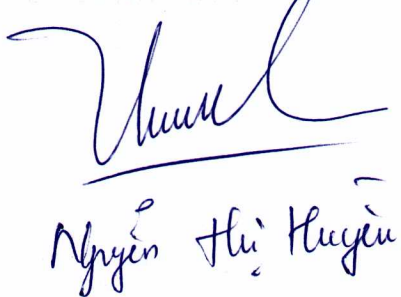 Nguyễn Thị Huyền